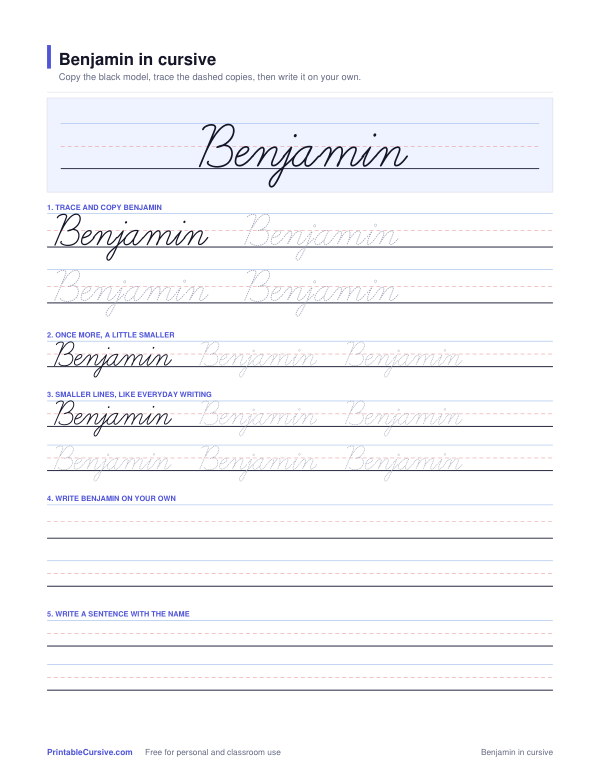 Benjamin in cursive
Copy the black model, trace the dashed copies, then write it on your own.
Benjamin
1. TRACE AND COPY BENJAMIN
Benjamin Benjamin
Benjamin Benjamin
2. ONCE MORE, A LITTLE SMALLER
Benjamin Benjamin Benjamin
3. SMALLER LINES, LIKE EVERYDAY WRITING
Benjamin Benjamin Benjamin
Benjamin Benjamin Benjamin
4. WRITE BENJAMIN ON YOUR OWN
5. WRITE A SENTENCE WITH THE NAME
PrintableCursive.com Free for personal and classroom use Benjamin in cursive